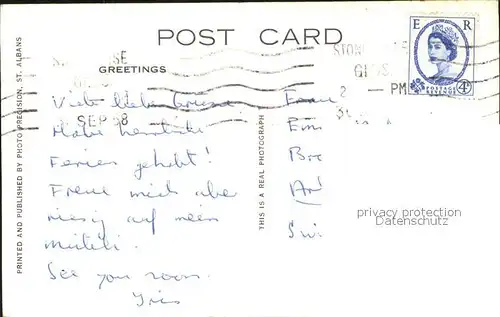 POST CARD
GREETINGS
E R
POSTAGE
REVENUE
4D
SEP
2 — PM
Viele liebe Grüsse
Habe herrliche
Ferien gehabt!
Freue mich aber
riesig auf mein
See you soon.
Iris
Frau
Em
Bre
Sw.
PRINTED AND PUBLISHED BY PHOTO PRECISION, ST. ALBANS
THIS IS A REAL PHOTOGRAPH
privacy protection
Datenschutz